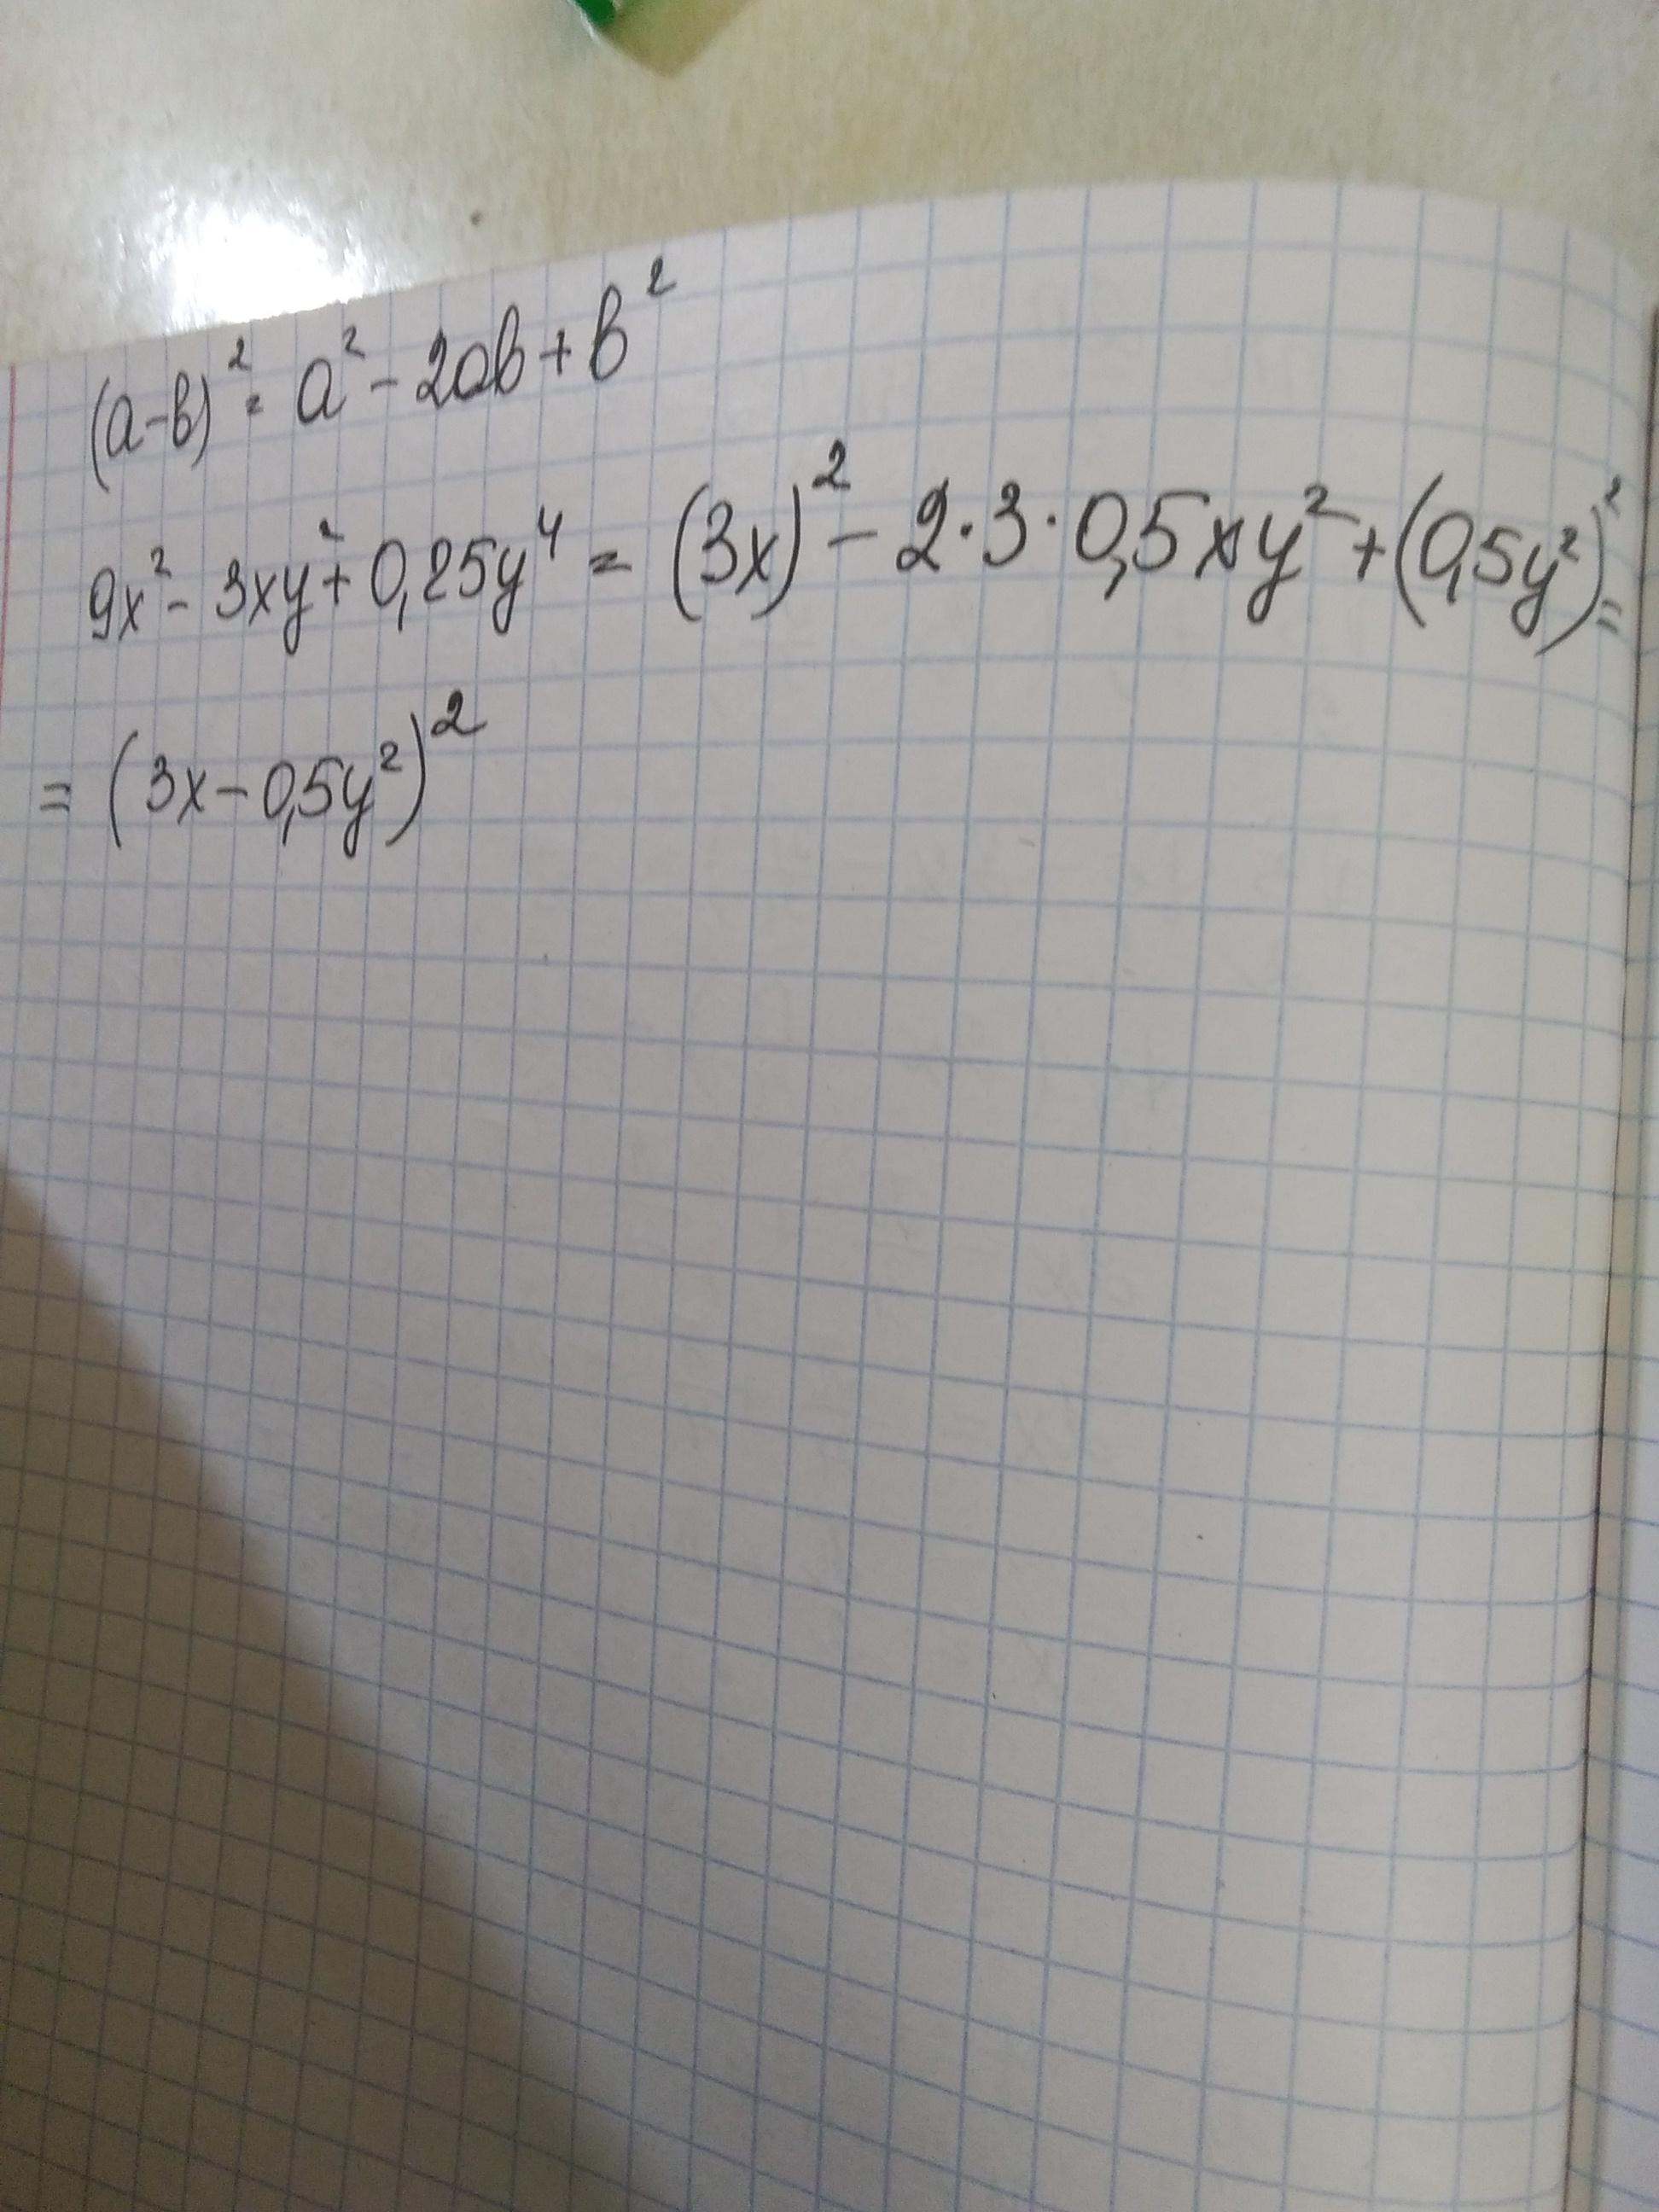 (a-b)² = a² - 2ab + b²
9x² - 3xy² + 0,25y⁴ = (3x)² - 2·3·0,5xy² + (0,5y²)² =
= (3x - 0,5y²)²